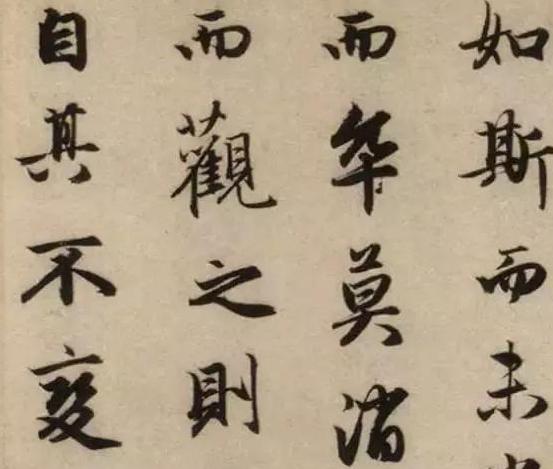 如斯而未
而卒莫消
而觀之則
自其不變